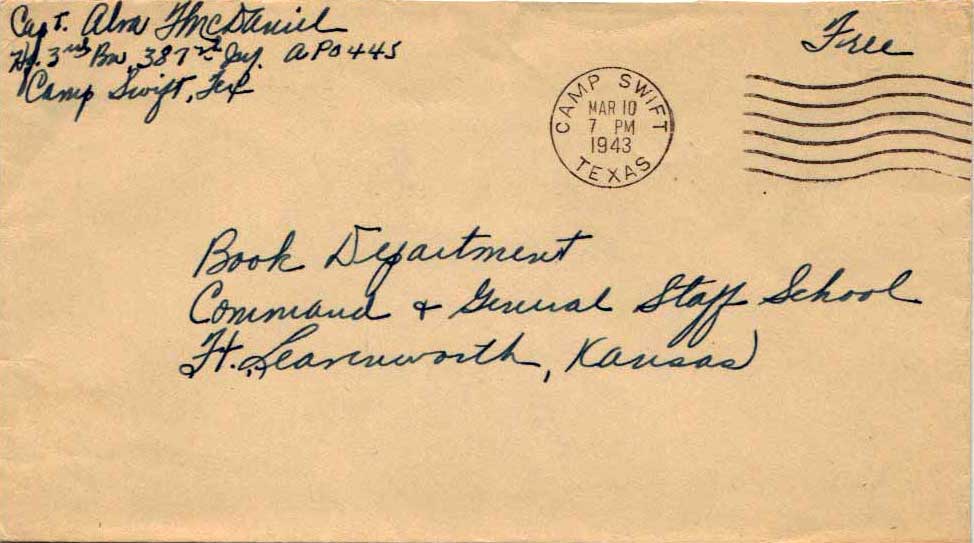 Capt. Alva F McDaniel
Hq. 3rd Bn, 387th Inf. APO 445
Camp Swift, Tex
Free
CAMP SWIFT
MAR 10
7 PM
1943
TEXAS
Book Department
Command & General Staff School
Ft. Leavenworth, Kansas